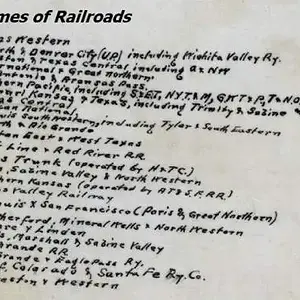 mes of Railroads
as Western
th & Denver City (U.P.) including Wichita Valley Ry.
ston & Texas Central including A & NW
rnational & Great Northern
ntonio & Aransas Pass
ern Pacific, including
ouri, Kansas & Texas, including Trinity & Sabine
an National
ouis Southwestern, including Tyler & South Eastern
h & Rio Grande
ton East & West Texas
Line & Red River R.R.
s Trunk (operated by H & T C.)
, Sabine Valley & North Western
hern Kansas (operated by AT & S.F. RR.)
os Valley Railway
ouis & San Francisco (Paris & Great Northern)
therford, Mineral Wells & North Western
se & Linden
s, Marshall & Sabine Valley
rande RR
Grande & Eagle Pass Ry.
f, Colorado & Santa Fe Ry. Co.
eston & Western